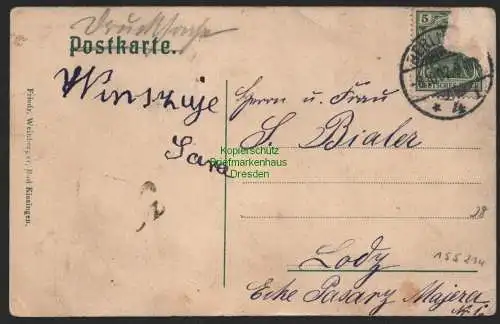 Drucksache
Postkarte.
5
BERLIN
DEUTSCHES REICH
Winszuje
Sara
Herrn u. Frau
S. Bialer
Kopierschutz
Briefmarkenhaus
Dresden
28
155214
Lody
Ecke Pasarz Majera
№ 1.
Friedr. Weinberger, Bad Kissingen.